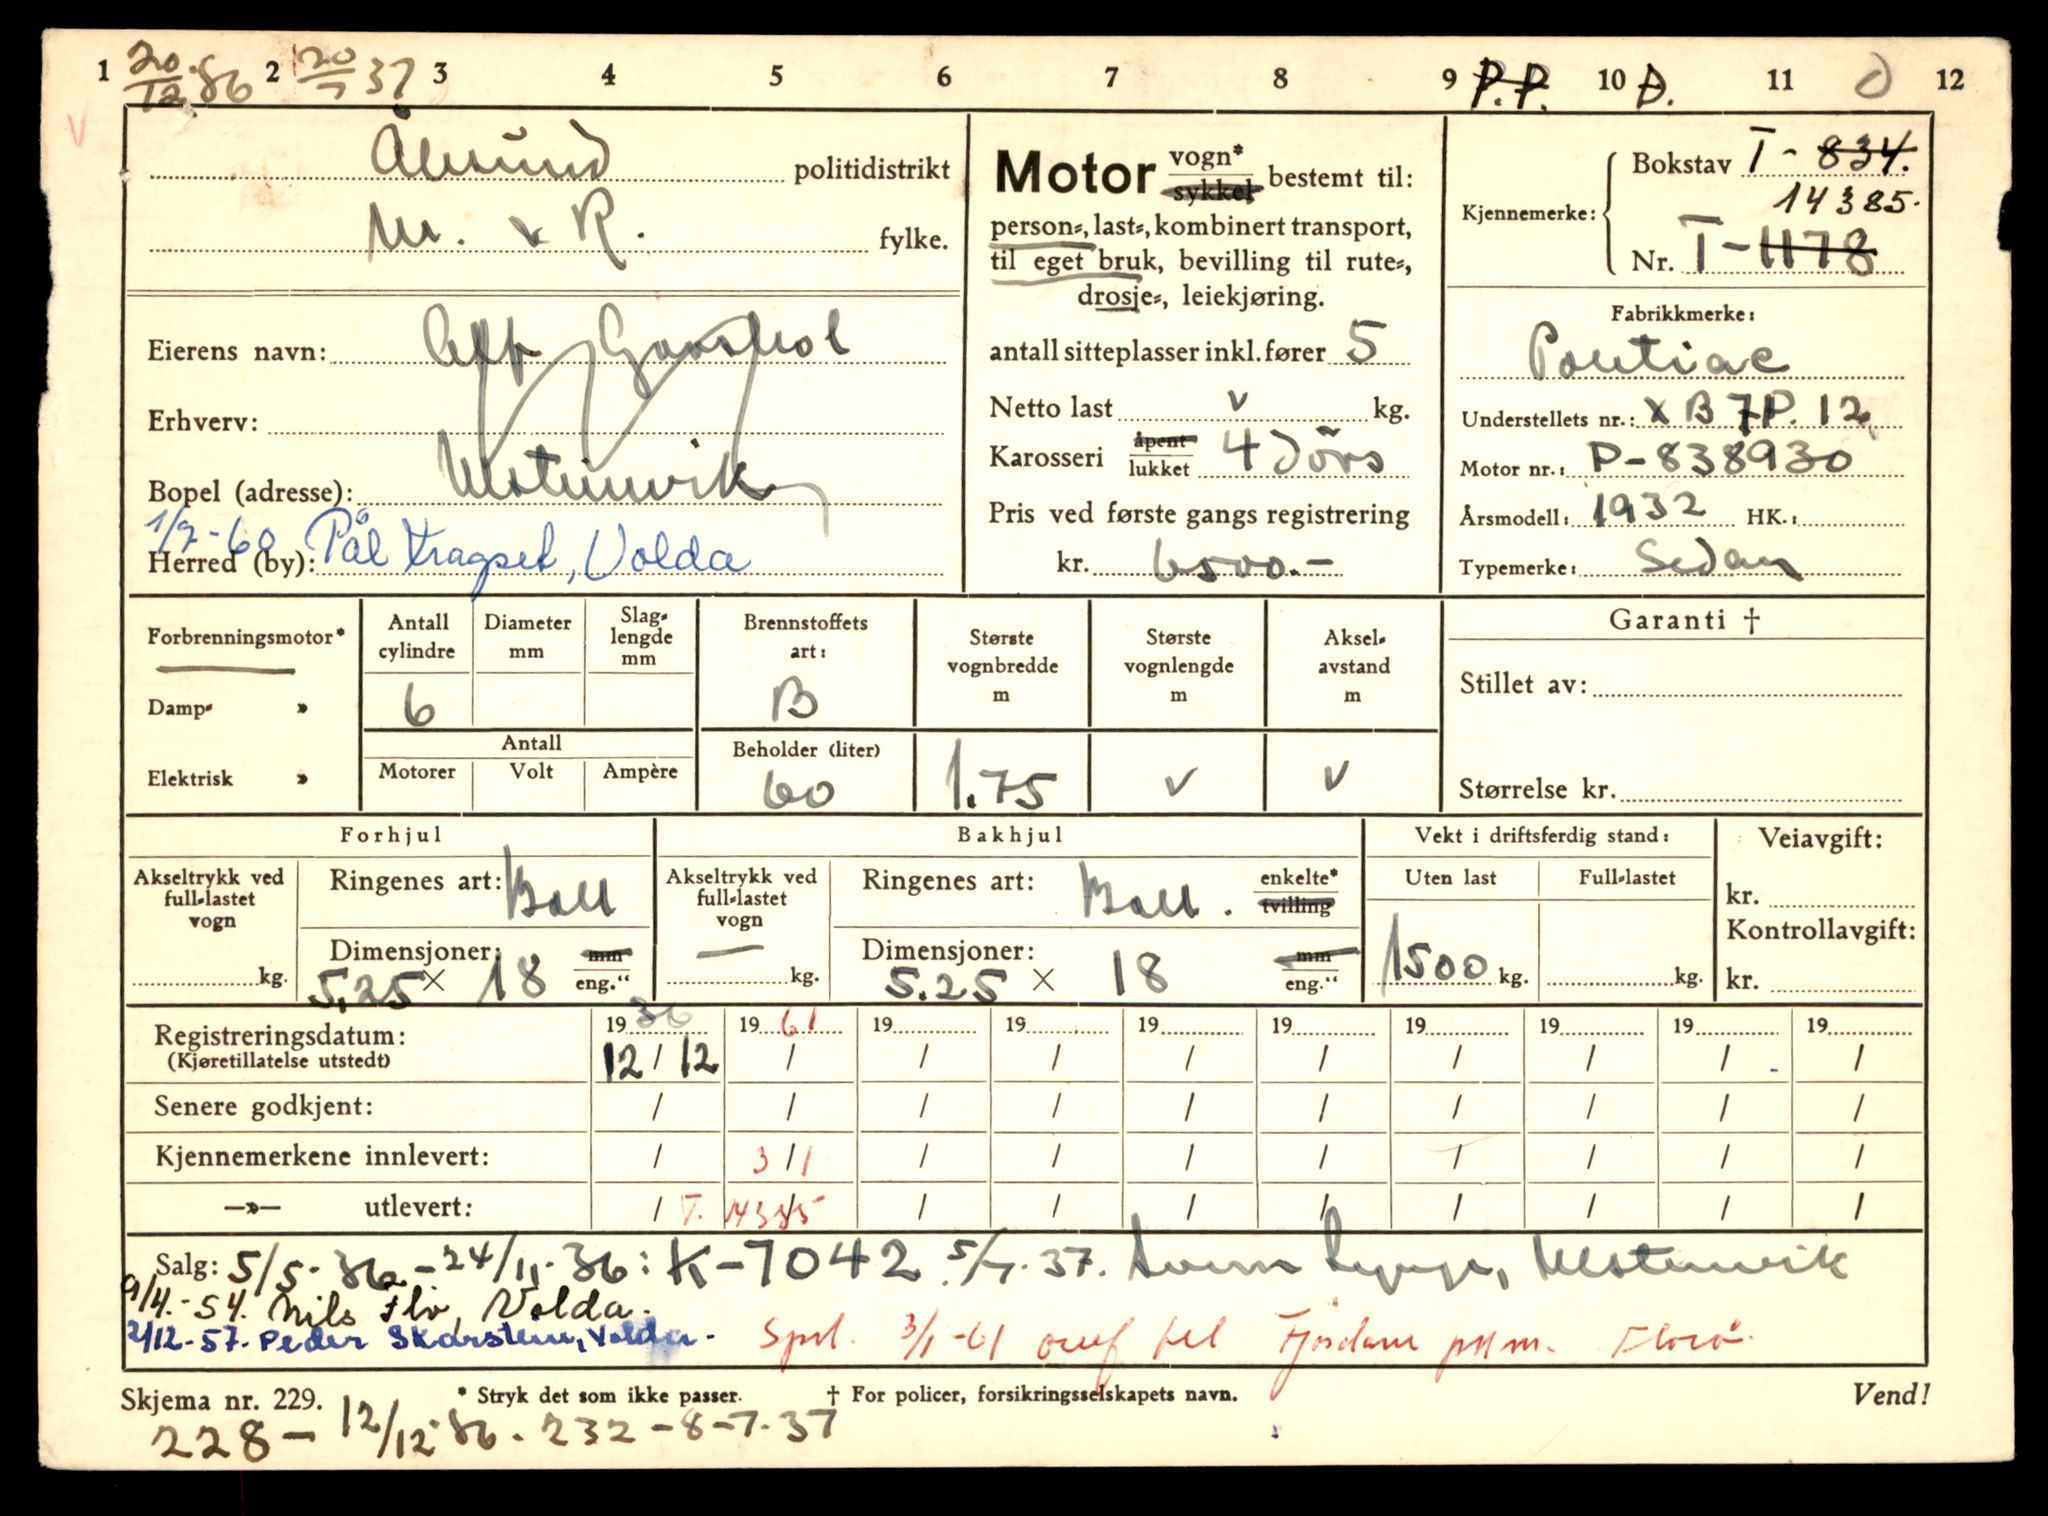 1 20/12-36 2 20/7 37 3 4 5 6 7 8 9 P.P. 10 D. 11 12
Ålesund politidistrikt
M. & R. fylke.
Eierens navn: Garshol
Erhverv:
Bopel (adresse): Ulsteinvik
1/7-60 Pål Kragset, Volda
Herred (by):
Motor vogn* sykkel bestemt til:
person-, last-, kombinert transport,
til eget bruk, bevilling til rute-,
drosje-, leiekjøring.
antall sitteplasser inkl. fører 5
Netto last v kg.
Karosseri åpent lukket 4 dörs
Pris ved første gangs registrering
kr. 6500.-
Kjennemerke: Bokstav T-834.
14385.
Nr. T-1178
Fabrikkmerke:
Pontiac
Understellets nr.: XB7P.12
Motor nr.: P-838930
Årsmodell: 1932 HK.:
Typemerke: Sedan
Forbrenningsmotor*
Damp- »
Elektrisk »
Antall cylindre 6
Diameter mm
Slag-lengde mm
Antall
Motorer Volt Ampère
Brennstoffets art: B
Beholder (liter) 60
Største vognbredde m 1.75
Største vognlengde m v
Aksel-avstand m v
Garanti †
Stillet av:
Størrelse kr.
Forhjul
Akseltrykk ved full-lastet vogn kg.
Ringenes art: Ball
Dimensjoner: 5.25 × 18 mm eng."
Bakhjul
Akseltrykk ved full-lastet vogn — kg.
Ringenes art: Ball. enkelte* tvilling
Dimensjoner: 5.25 × 18 mm eng."
Vekt i driftsferdig stand:
Uten last Full-lastet
1500 kg. kg.
Veiavgift:
kr.
Kontrollavgift:
kr.
Registreringsdatum: 1936 1961 19 19 19 19 19 19 19 19
(Kjøretillatelse utstedt) 12/12 / / / / / / / / /
Senere godkjent: / / / / / / / / / /
Kjennemerkene innlevert: / 3/1 / / / / / / / /
—»— utlevert: / T. 14385 / / / / / / / /
Salg: 5/5-36-24/11-36: K-7042 5/7-37. Ulsteinvik
9/4.-54. Nils Flø, Volda.
2/12-57. Peder Skarstein, Volda. 3/1-61 til Fjordane Florø.
Skjema nr. 229. * Stryk det som ikke passer. † For policer, forsikringsselskapets navn. Vend!
228-12/12-36. 232-8-7-37